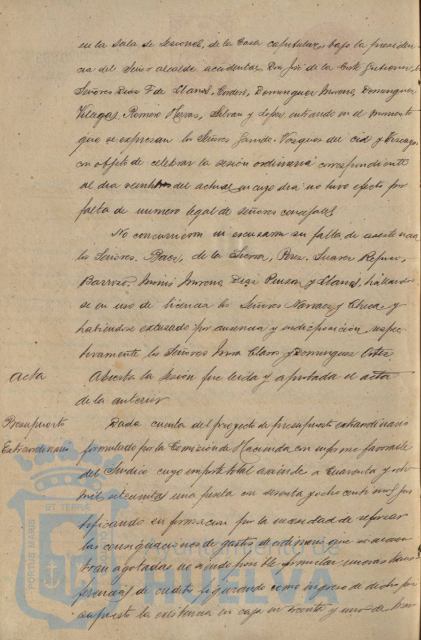 en la Sala de Sesiones, de la Casa capitular, bajo la presiden-
cia del Señor alcalde accidental Don José de la Corte Gutierrez, los
Señores Diaz F. de Llanos, Cordero, Dominguez Moreno, Dominguez
Villegas, Romero Navas, y Lopez entrando en el momento
que se expresan los Señores Garrido, Vazquez del Cid y Vizcaya
con objeto de celebrar la sesión ordinaria correspondiente
al dia del actual en cuyo dia no tuvo efecto por
falta de numero legal de señores concejales.
No concurrieron ni excusaron su falta de asistencia
los Señores. Baez, de la Sierra, Perez, Suarez
Barroso, Moreno, Diaz Pinzon y Llanes, hallando-
se en uso de licencia los Señores Narvaez y Checa y
habiendose excusado por ausencia y indisposición, respec-
tivamente los Señores Claro y Dominguez Ortiz
Acta Abierta la sesión fue leida y aprobada el acta
de la anterior
Presupuesto Dada cuenta del proyecto de presupuesto extraordinario
Extraordinario formulado por la Comisión de Hacienda con informe favorable
del Sindico cuyo importe total asciende a cuarenta y ocho
mil peseta con sesenta y ocho centimos, jus-
tificando su formacion por la necesidad de reforzar
las consignaciones de gastos del ordinario que se encuen-
tran agotadas no siendo posible formular nuevas trans-
ferencias de credito figurando como ingreso de dicho pre-
supuesto la existencia en caja en treinta y uno de
Ayuntamiento de
HUELVA
PORTUS MARIS
ET TERRAE